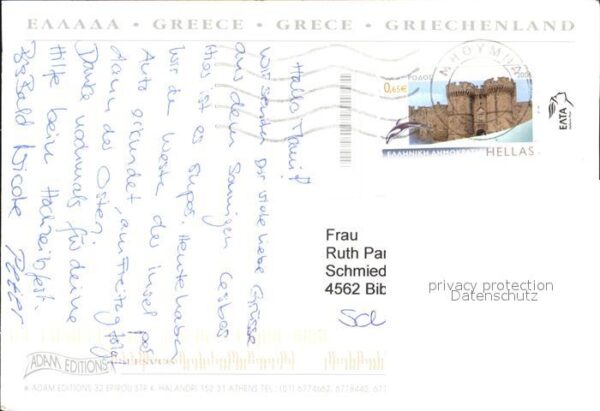 ΕΛΛΑΔΑ • GREECE • GRECE • GRIECHENLAND
Hallo Mami!
Wir senden Dir viele liebe Grüsse
aus dem sonnigen Lesbos
Hier ist es super. Heute haben
wir den Westen der Insel per
Auto erkundet, am Freitag folgt
dann der Osten.
Danke nochmals für deine
Hilfe beim Hochzeitsfest.
Bis Bald Nicole Peter
ΜΗΘΥΜΝΑ
ΡΟΔΟΣ
0,65€
HELLAS
ΕΛΛΗΝΙΚΗ ΔΗΜΟΚΡΑΤΙΑ
ΕΛΤΑ
Frau
Ruth Par
Schmied
4562 Bib
privacy protection
Datenschutz
ADAM EDITIONS
LESVOS
ADAM EDITIONS 32 EPIROU STR. HALANDRI 152 31 ATHENS TEL.: (01) 6774662, 6778445,